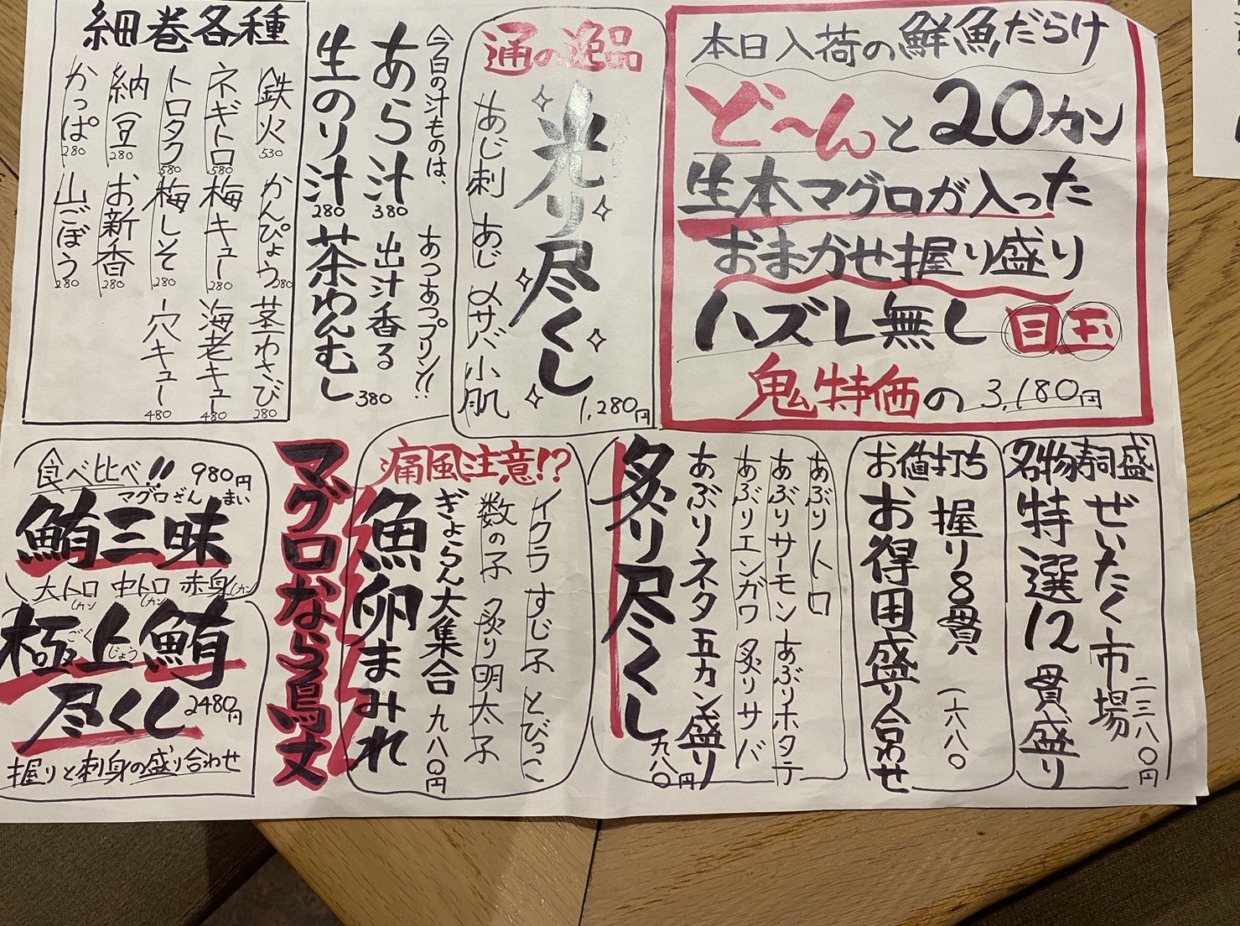 本日入荷の鮮魚だらけ
ど〜んと20カン
生本マグロが入った
おまかせ握り盛り
ハズレ無し 目玉
鬼特価の 3,180円
通の逸品
光り尽くし
あじ刺 あじ 〆サバ 小肌
1,280円
今日の汁ものは、
あら汁 380
生のり汁 280
あつあつプリン!!
出汁香る
茶わんむし 380
細巻各種
鉄火 530
かんぴょう 280
茎わさび 280
ネギトロ 580
梅キュー 280
海老キュー 480
トロタク 580
梅しそ 280
穴キュー 480
納豆 280
お新香 280
かっぱ 280
山ごぼう 280
名物寿司盛
ぜいたく市場
特選12貫盛り
二三八〇円
お値打ち
握り8貫
お得用盛り合わせ
一六八〇
炙り尽くし
あぶりトロ
あぶりサーモン あぶりホタテ
あぶりエンガワ 炙りサバ
あぶりネタ五カン盛り
九八〇円
痛風注意!?
イクラ すじ子 とびっこ
数の子 炙り明太子
ぎょらん大集合 九八〇円
魚卵まみれ
マグロなら鳥丈
食べ比べ!! 980円
マグロざんまい
鮪三昧
大トロ1カン 中トロ1カン 赤身1カン
ごくじょう
極上鮪
尽くし 2480円
握りと刺身の盛り合わせ